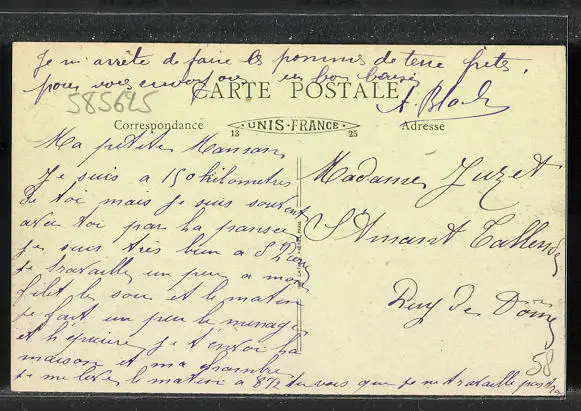 Je m'arrête de faire les pommes de terre frites,
pour vous envoyer un bon baiser
585625
CARTE POSTALE
A. Bloch
Correspondance
UNIS-FRANCE
Adresse
13
25
Ma petite Maman
Je suis à 150 kilomètres
de toi mais je suis souvent
avec toi par la pensée
je suis très bien à St
je travaille un peu à mon
filet le soir et le matin
je fait un peu le ménage
et l'épicerie je t'envoi la
maison et ma chambre
je me lève le matin à 8 1/2 tu vois que je ne travaille pas trop
Madame Juzet
St Amant Tallende
Puy de Dôme
58